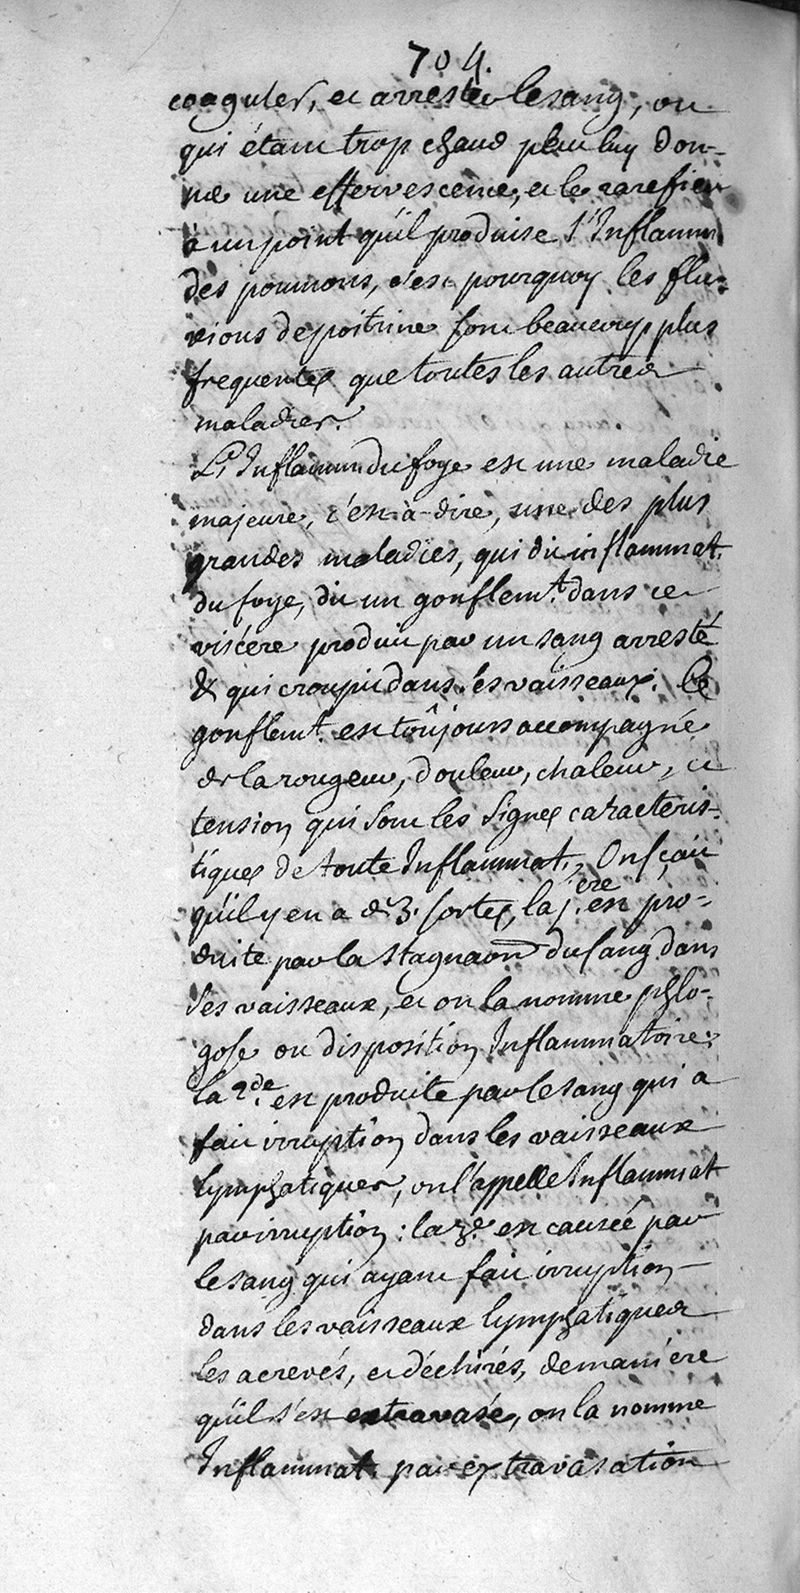 704.
coaguler, et arrester le sang, ou
qui étant trop chaud peut luy don-
ne une effervescence, et le rarefier
a un point qu'il produise l'Inflamm
des poumons, c'est pourquoy les flu-
xions de poitrine sont beaucoup plus
frequentes que toutes les autres
maladies.
L'Inflamm du foye est une maladie
majeure, c'est-à-dire, une des plus
grandes maladies, qui dit inflammat.
du foye, dit un gonflemt. dans ce
viscére produit par un sang arresté
& qui croupit dans ses vaisseaux. Ce
gonflemt. est toûjours accompagné
de la rougeur, douleur, chaleur, et
tension qui sont les signes caracteris-
tiques de toute Inflammat., On sçait
qu'il y en a de 3. sortes, la 1.ere est pro-
duite par la stagnaon du sang dans
ses vaisseaux, et on la nomme phlo-
gose ou disposition Inflammatoire:
la 2de. est produite par le sang qui a
fait irruption dans les vaisseaux
lymphatiques, on l'appelle Inflammat
par irruption: la 3e. est causée par
le sang qui ayant fait irruption
dans les vaisseaux lymphatiques
les a crevés, et déchirés, de maniere
qu'il s'est extravasé, on la nomme
Inflammat. par extravasation